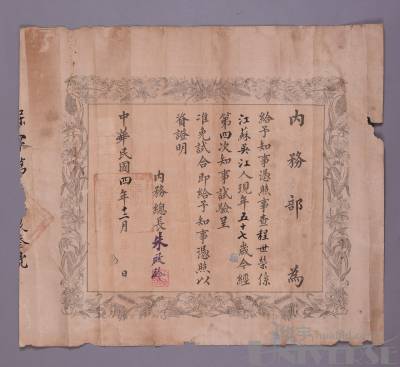 內務部 為
給予知事憑照事查程世榮係
江蘇吳江人現年五十七歲今經
第四次知事試驗呈
准免試合即給予知事憑照以
資證明
內務總長朱啟鈐
中華民國四年十二月 日
UNIVERSE